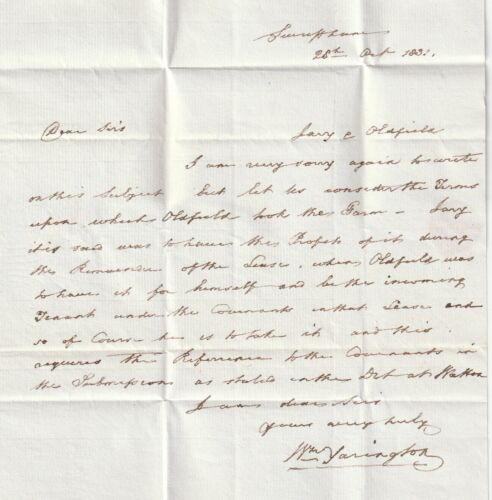 Swaffham
28th Oct 1831.
Dear Sirs
Jary & Oldfield
I am very sorry again to write
on this Subject but let us consider the Terms
upon which Oldfield took this Farm – Jary
it is said was to have the Profits of it during
the Remainder of the Lease, when Oldfield was
to have it for himself and be the incoming
Tenant under the Covenants in that Lease and
so of Course he is to take it and this
requires the Reference to the Covenants in
the Submissions as stated in the Dft at Watton
I am dear Sirs
yours very truly
Wm Yarington